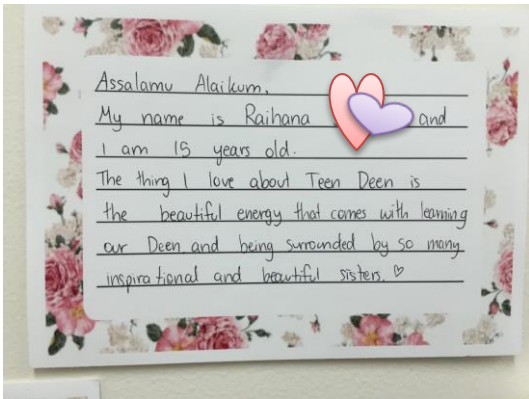 Assalamu Alaikum,
My name is Raihana and
I am 15 years old.
The thing I love about Teen Deen is
the beautiful energy that comes with learning
our Deen and being surrounded by so many
inspirational and beautiful sisters. ♡